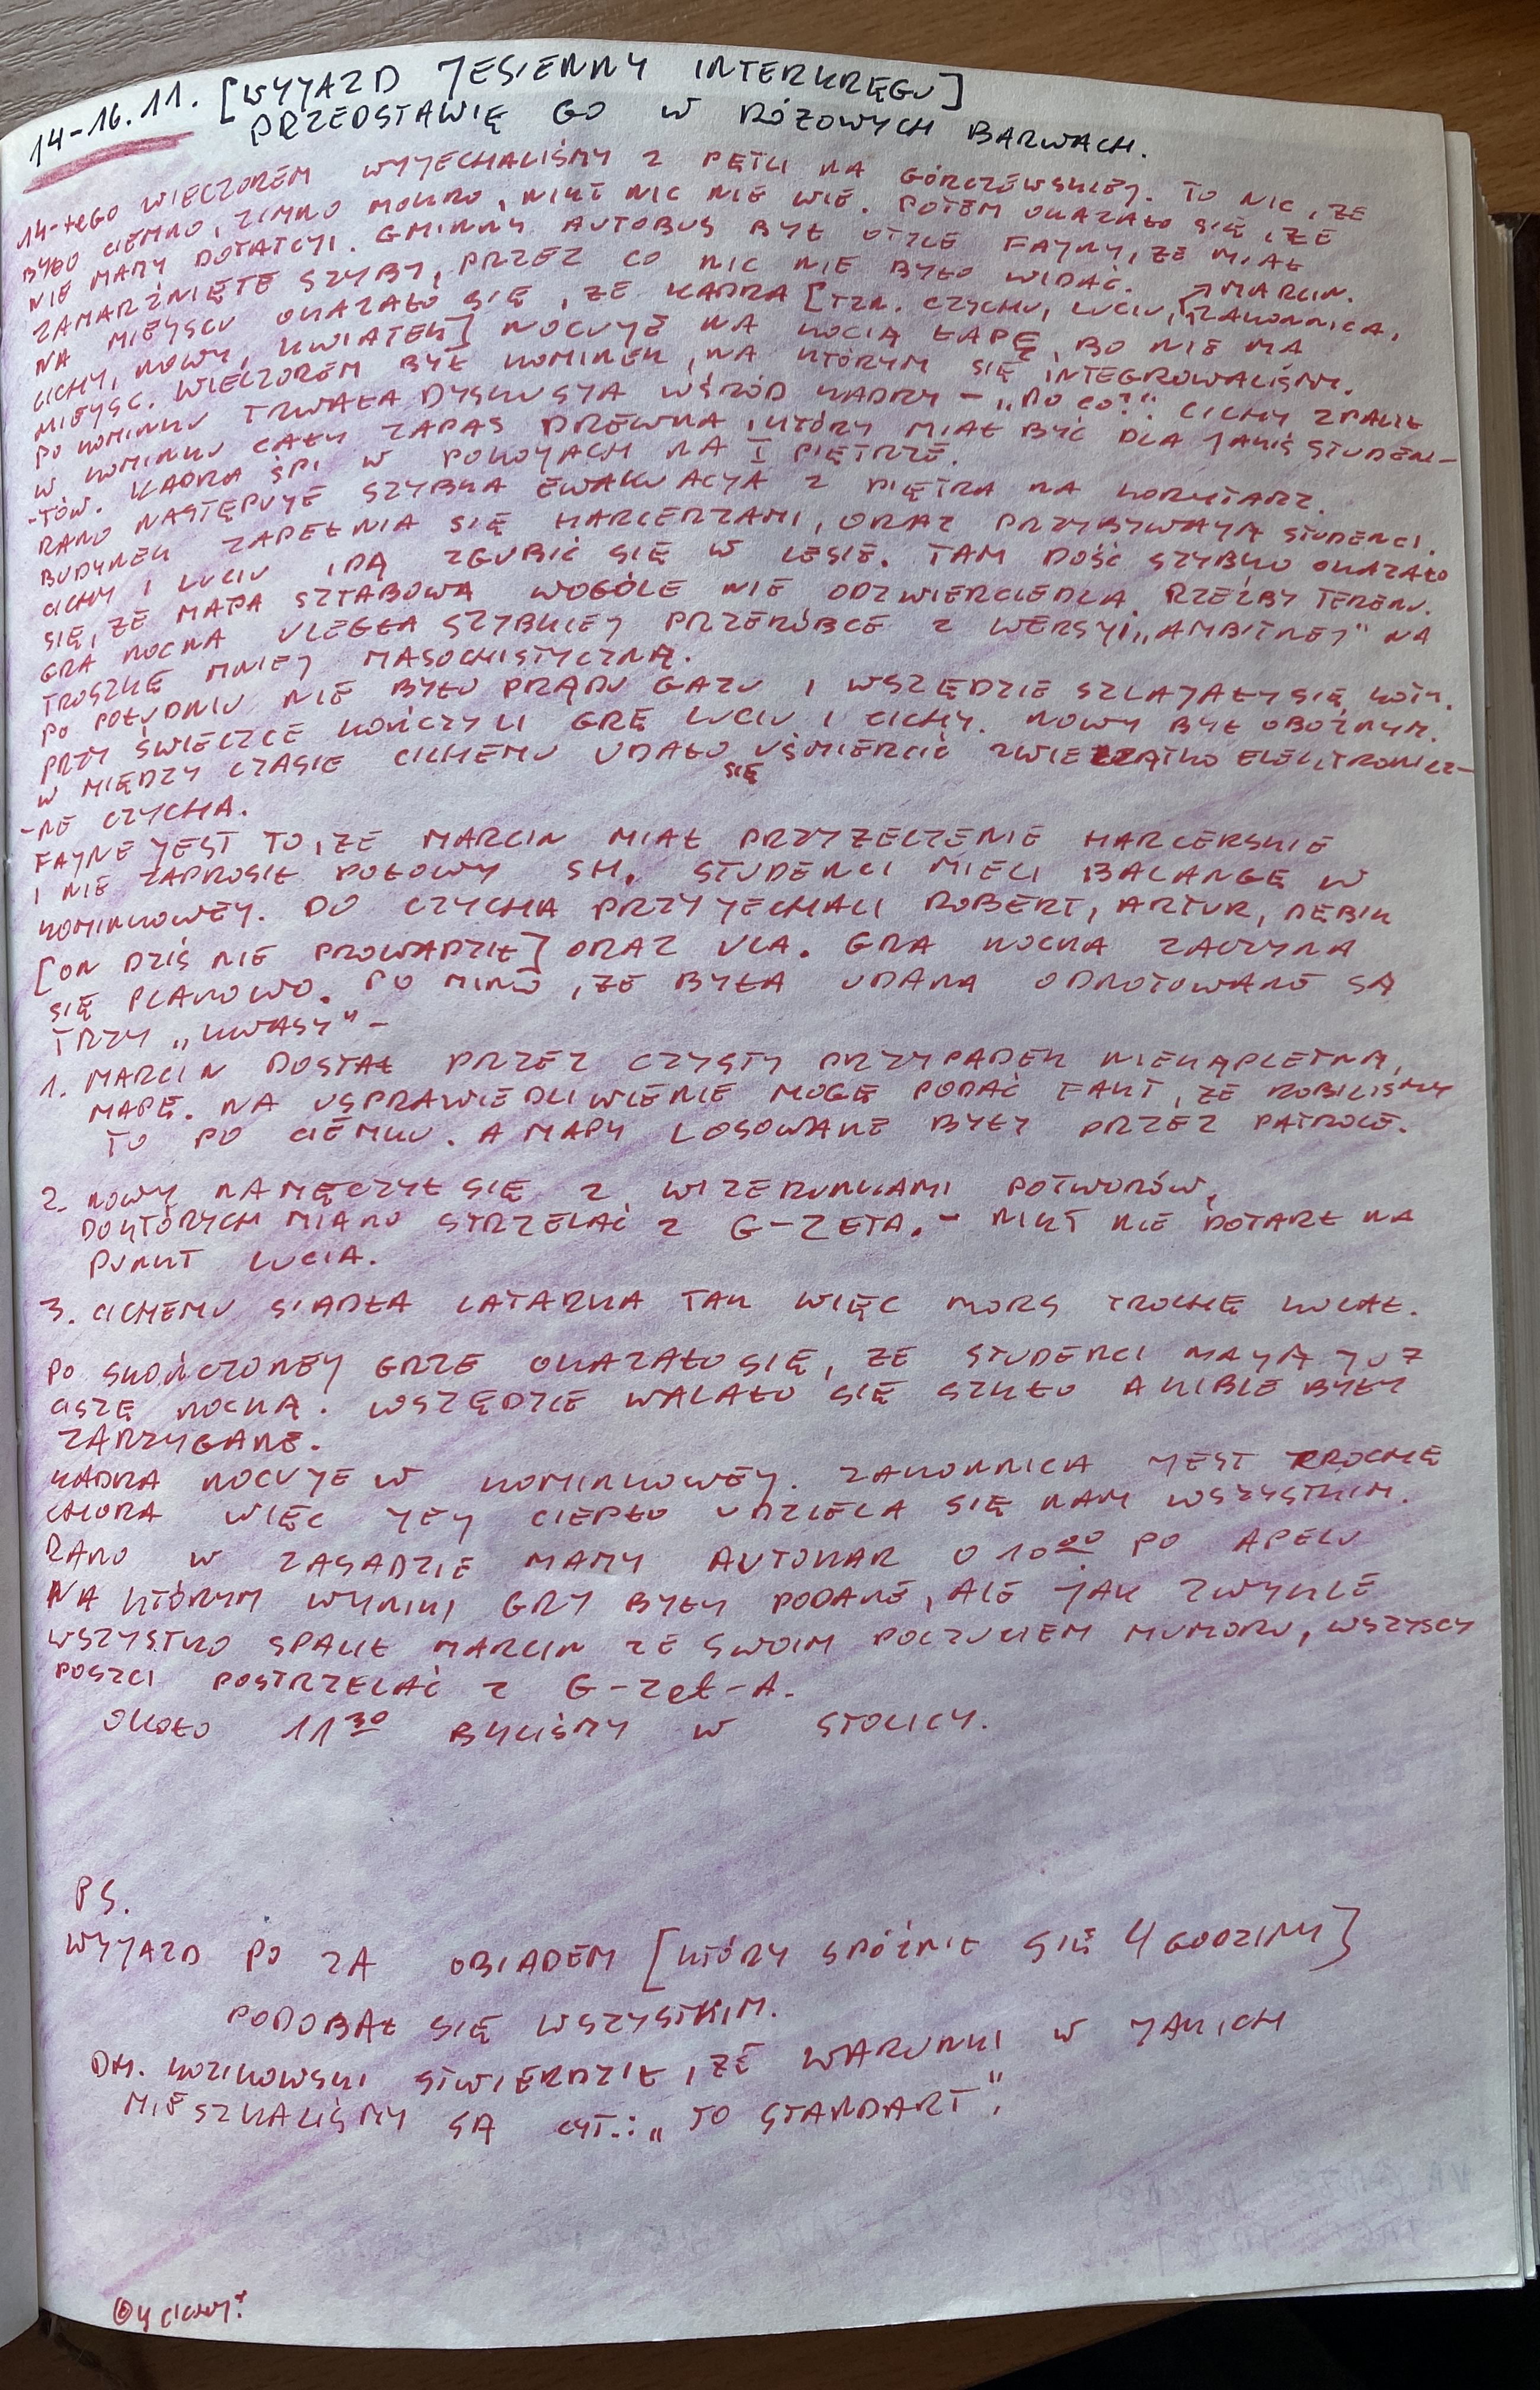 14-16.11. [WYJAZD JESIENNY INTERKRĘGU]
PRZEDSTAWIĘ GO W RÓŻOWYCH BARWACH.
14-tego WIECZOREM WYJECHALIŚMY Z PĘTLI NA GÓRCZEWSKIEJ. TO NIC, ŻE
BYŁO CIEMNO, ZIMNO MOKRO, NIKT NIC NIE WIE. POTEM OKAZAŁO SIĘ, ŻE
NIE MAMY DOTATCJI. GMINNY AUTOBUS BYŁ TYLE FAJNY, ŻE MIAŁ
ZAMARZNIĘTE SZYBY, PRZEZ CO NIC NIE BYŁO WIDAĆ. MARCIN.
NA MIEJSCU OKAZAŁO SIĘ, ŻE KADRA [TZN. CZYCHU, LUCIU, ZAKONNICA,
CICHY, NOWY, KWIATEK] NOCUJE NA KOCIĄ ŁAPĘ, BO NIE MA
MIEJSC. WIECZOREM BYŁ KOMINEK, NA KTÓRYM SIĘ INTEGROWALIŚMY.
PO KOMINKU TRWAŁA DYSKUSJA WŚRÓD KADRY - „PO CO?". CICHY SPALIŁ
W KOMINKU CAŁY ZAPAS DREWNA, KTÓRY MIAŁ BYĆ DLA JAKIŚ STUDEN-
-TÓW. KADRA ŚPI W POKOJACH NA I PIĘTRZE.
RANO NASTĘPUJE SZYBKA EWAKUACJA Z PIĘTRA NA KORYTARZ.
BUDYNEK ZAPEŁNIA SIĘ HARCERZAMI, ORAZ PRZYBYWAJĄ STUDENCI.
CICHY I LUCIU IDĄ ZGUBIĆ SIĘ W LESIE. TAM DOŚĆ SZYBKO OKAZAŁO
SIĘ, ŻE MAPA SZTABOWA WOGÓLE NIE ODZWIERCIEDLA RZEŹBY TERENU.
GRA NOCNA ULEGŁA SZYBKIEJ PRZERÓBCE Z WERSJI „AMBITNEJ" NA
TROSZKĘ MNIEJ MASOCHISTYCZNĄ.
PO POŁUDNIU NIE BYŁO PRĄDU GAZU I WSZĘDZIE SZLAJAŁY SIĘ KOTY.
PRZY ŚWIECZCE KOŃCZYLI GRĘ LUCIU I CICHY. NOWY BYŁ OBOŹNYM.
W MIĘDZY CZASIE CICHEMU UDAŁO SIĘ UŚMIERCIĆ ZWIERZĄTKO ELEKTRONICZ-
-NE CZYCHA.
FAJNE JEST TO, ŻE MARCIN MIAŁ PRZYRZECZENIE HARCERSKIE
I NIE ZAPROSIŁ POŁOWY SH. STUDENCI MIELI BALANGĘ W
KOMINKOWEJ. DO CZYCHA PRZYJECHALI ROBERT, ARTUR, DĘBIK
[ON DZIŚ NIE PROWADZIŁ] ORAZ ULA. GRA NOCNA ZACZYNA
SIĘ PLANOWO. PO MIMO, ŻE BYŁA UDANA ODNOTOWANE SĄ
TRZY „KWASY" -
1. MARCIN DOSTAŁ PRZEZ CZYSTY PRZYPADEK NIEKĄPLETNĄ
MAPĘ. NA USPRAWIEDLIWIENIE MOGĘ PODAĆ FAKT, ŻE ROBILIŚMY
TO PO CIEMKU. A MAPY LOSOWANE BYŁY PRZEZ PATROLE.
2. NOWY NAMĘCZYŁ SIĘ Z WIZERUNKAMI POTWORÓW,
DO KTÓRYCH MIANO STRZELAĆ Z G-ZETA. - NIKT NIE DOTARŁ NA
PUNKT LUCIA.
3. CICHEMU SIADŁA LATARKA TAK WIĘC MORS TROCHĘ KULAŁ.
PO SKOŃCZONEJ GRZE OKAZAŁO SIĘ, ŻE STUDENCI MAJĄ JUŻ
CISZĘ NOCNĄ. WSZĘDZIE WALAŁO SIĘ SZKŁO A KIBLE BYŁY
ZARZYGANE.
KADRA NOCUJE W KOMINKOWEJ. ZAKONNICA JEST TROCHĘ
CHORA WIĘC JEJ CIEPŁO UDZIELA SIĘ NAM WSZYSTKIM.
RANO W ZASADZIE MAMY AUTOKAR O 10 00 PO APELU
NA KTÓRYM WYNIKI GRY BYŁY PODANE, ALE JAK ZWYKLE
WSZYSTKO SPALIŁ MARCIN ZE SWOIM POCZUCIEM HUMORU, WSZYSCY
POSZLI POSTRZELAĆ Z G-Zet-A.
OKOŁO 11 30 BYLIŚMY W STOLICY.
PS.
WYJAZD PO ZA OBIADEM [KTÓRY SPÓŹNIŁ SIĘ 4 GODZINY]
PODOBAŁ SIĘ WSZYSTKIM.
DH. KOZIKOWSKI STWIERDZIŁ, ŻE WARUNKI W JAKICH
MIESZKALIŚMY SĄ CYT.: „TO STANDART".
by CICHY